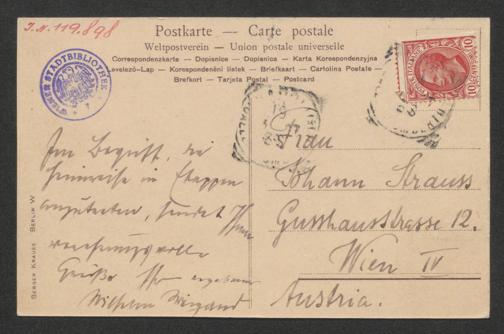 J.N. 119.898
Postkarte — Carte postale
Weltpostverein — Union postale universelle
Correspondenzkarte — Dopisnice — Dopisnica — Karta Korespondenzyjna
Levelező-Lap — Korespondenčni listek — Briefkaart — Cartolina Postale —
Brefkort — Tarjeta Postal — Postcard
WIENER STADTBIBLIOTHEK
10
Im Begriff, die
Heimreise in Etappen
anzutreten, sendet Ihnen
verehrungsvolle
Grüße Ihr ergebener
Wilhelm Weigand
Frau
Johann Strauss
Gusshausstrasse 12.
Wien IV
Austria.
Serger Krause Berlin W